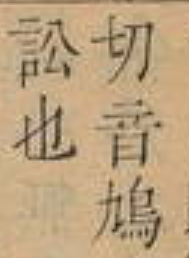 切音鳩
訟也